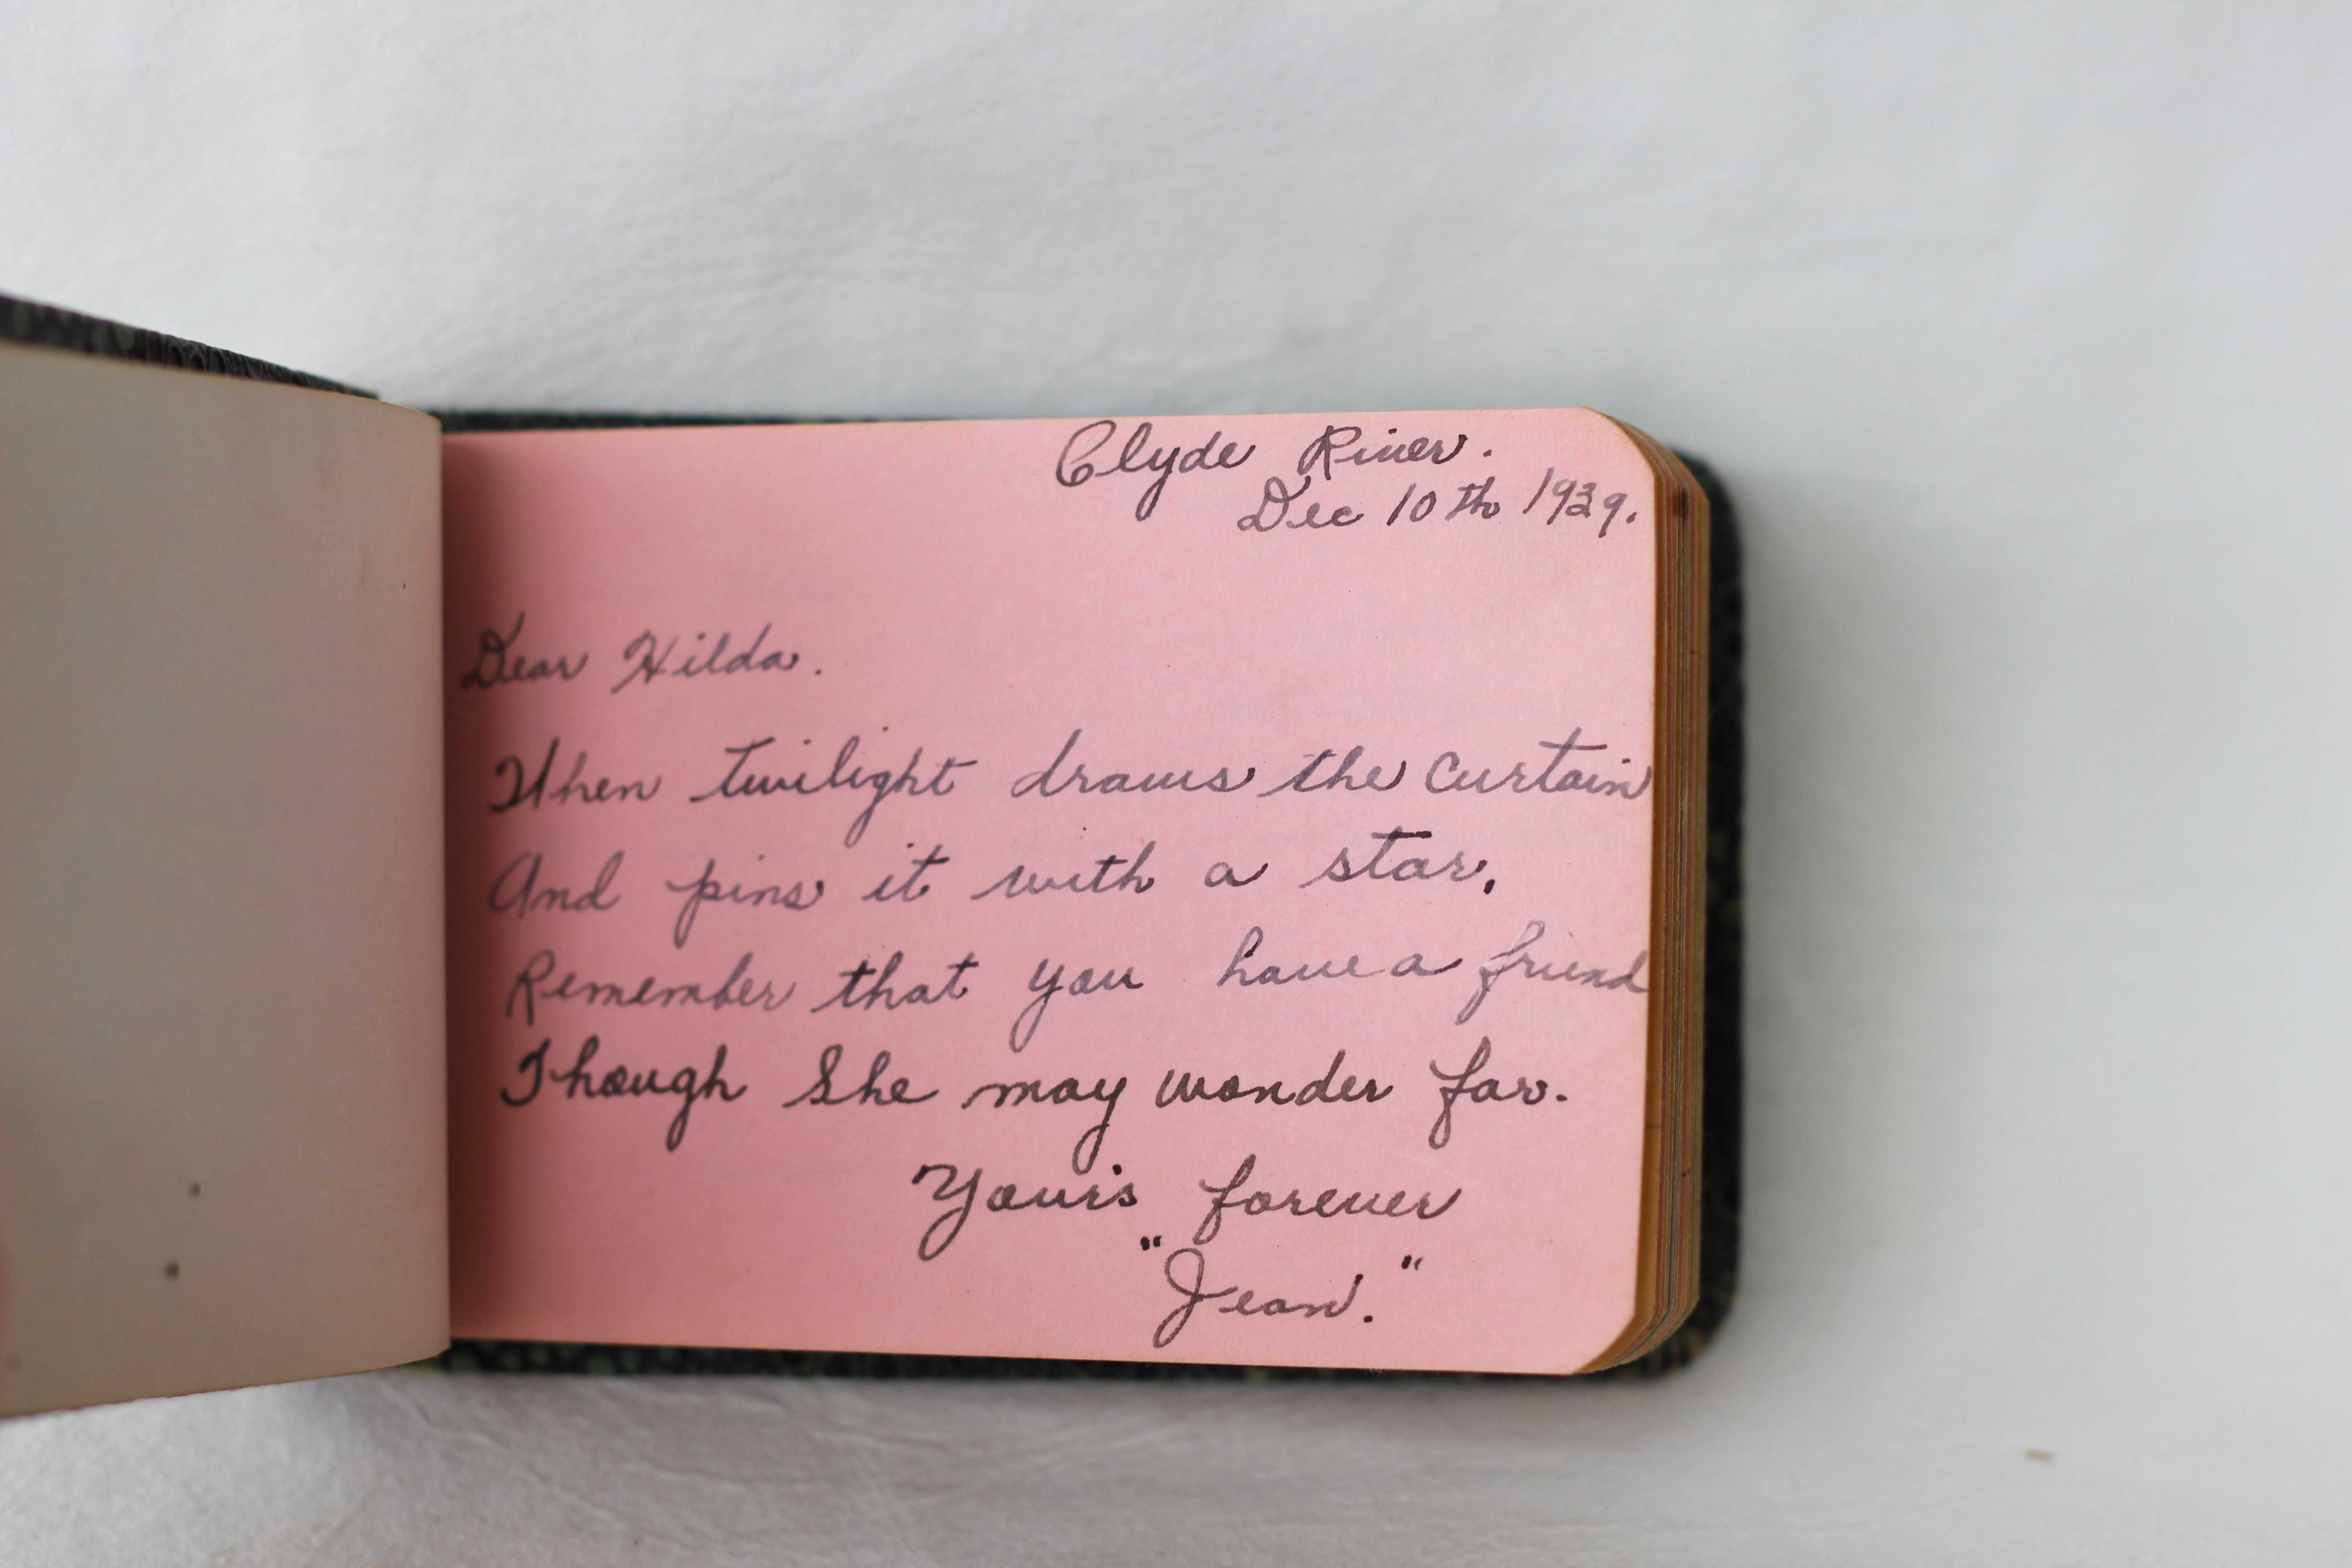 Clyde River.
Dec 10th 1939.
Dear Hilda.
When twilight draws the curtain
And pins it with a star.
Remember that you have a friend
Though She may wonder far.
Your's forever
"Jean."